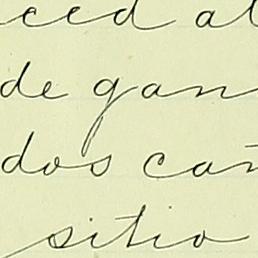 ceed al
de gan
dos cañ
sitio